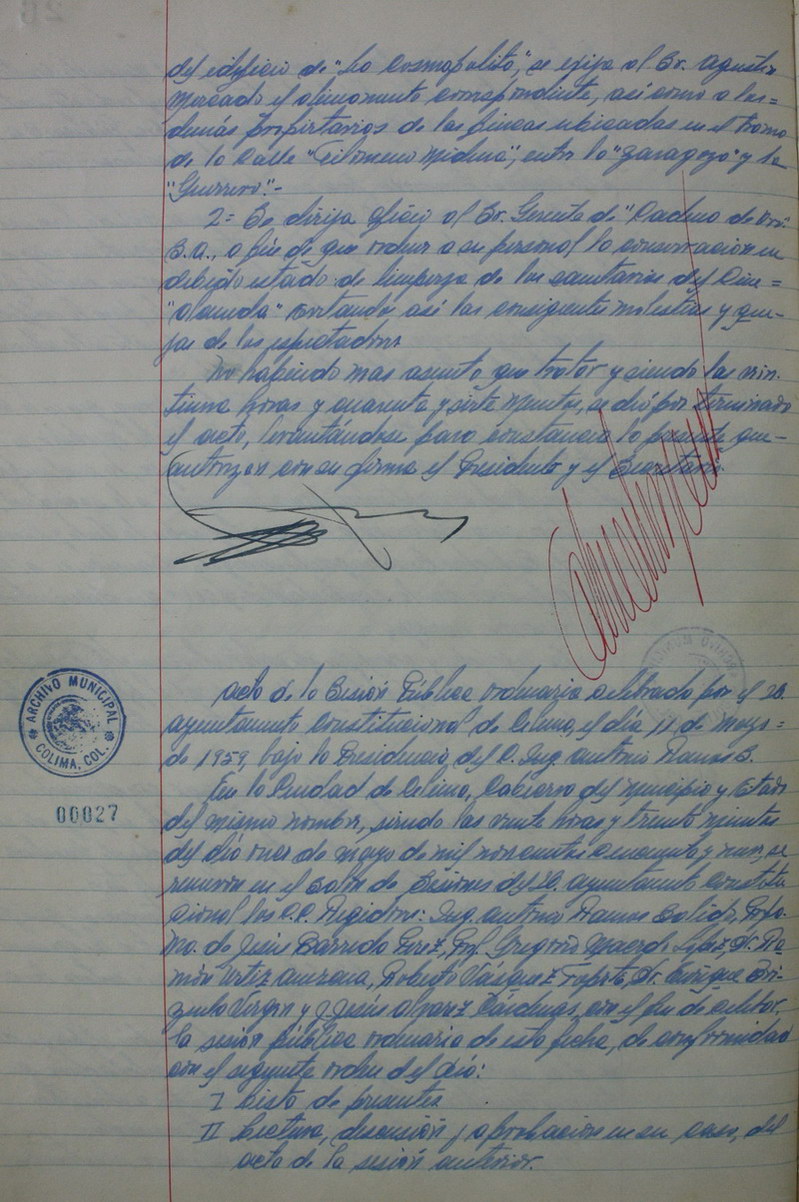 del edificio de "La Cosmopolita", se exija al Sr. Agustín
Mercado el alineamento correspondiente, así como a los=
demás propietarios de las fincas ubicadas en el tramo
de la Calle "Filomeno Medina", entre la "Zaragoza" y la
"Guerrero".-
2= Se dirija oficio al Sr. Gerente de "Cadena de Oro"
S.A., a fin de que ordene a su personal la conservación en
debido estado de limpieza de los sanitarios del Cine=
"Alameda" evitando así las consiguientes molestias y que-
jas de los espectadores
No habiendo mas asunto que tratar y siendo las vein-
tiuna horas y cuarenta y siete minutos, se dió por terminado
el acto, levantándose para constancia la presente que-
autorizan con su firma el Presidente y el Secretario.
Acta de la Sesión Pública ordinaria celebrada por el H.
Ayuntamiento Constitucional de Colima, el día 11 de Mayo=
de 1959, bajo la Presidencia del C. Ing. Antonio Ramos S.
ARCHIVO MUNICIPAL
COLIMA, COL.
En la Ciudad de Colima, Cabecera del Municipio y Estado
00027
del mismo nombre, siendo las veinte horas y treinta minutos
del día once de mayo de mil novecientos cincuenta y nueve, se
reunieron en el Salón de Sesiones del H. Ayuntamiento Constitu
cional los C.C. Regidores: Ing. Antonio Ramos Salido, Profa.
Ma. de Jesús Barreda Pérez, Prof. Gregorio Macedo López, Dr. Ra-
món Ortiz Anzona, Roberto Vásquez, Dr. Enrique Bri-
zuela Virgen y J. Jesús Alvarez Cárdenas, con el fin de celebrar
la sesión pública ordinaria de esta fecha, de conformidad
con el siguiente orden del Día:
I Lista de presentes
II Lectura, discusión y aprobación en su caso, del
acta de la sesión anterior.